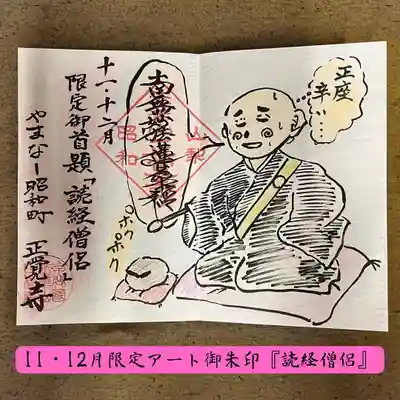 正座
辛い…
南無妙法蓮華経
山梨
昭和
十一・十二月
限定御首題『読経僧侶』
やまなし昭和町 正覚寺
ポク
ポク
11・12月限定アート御朱印『読経僧侶』